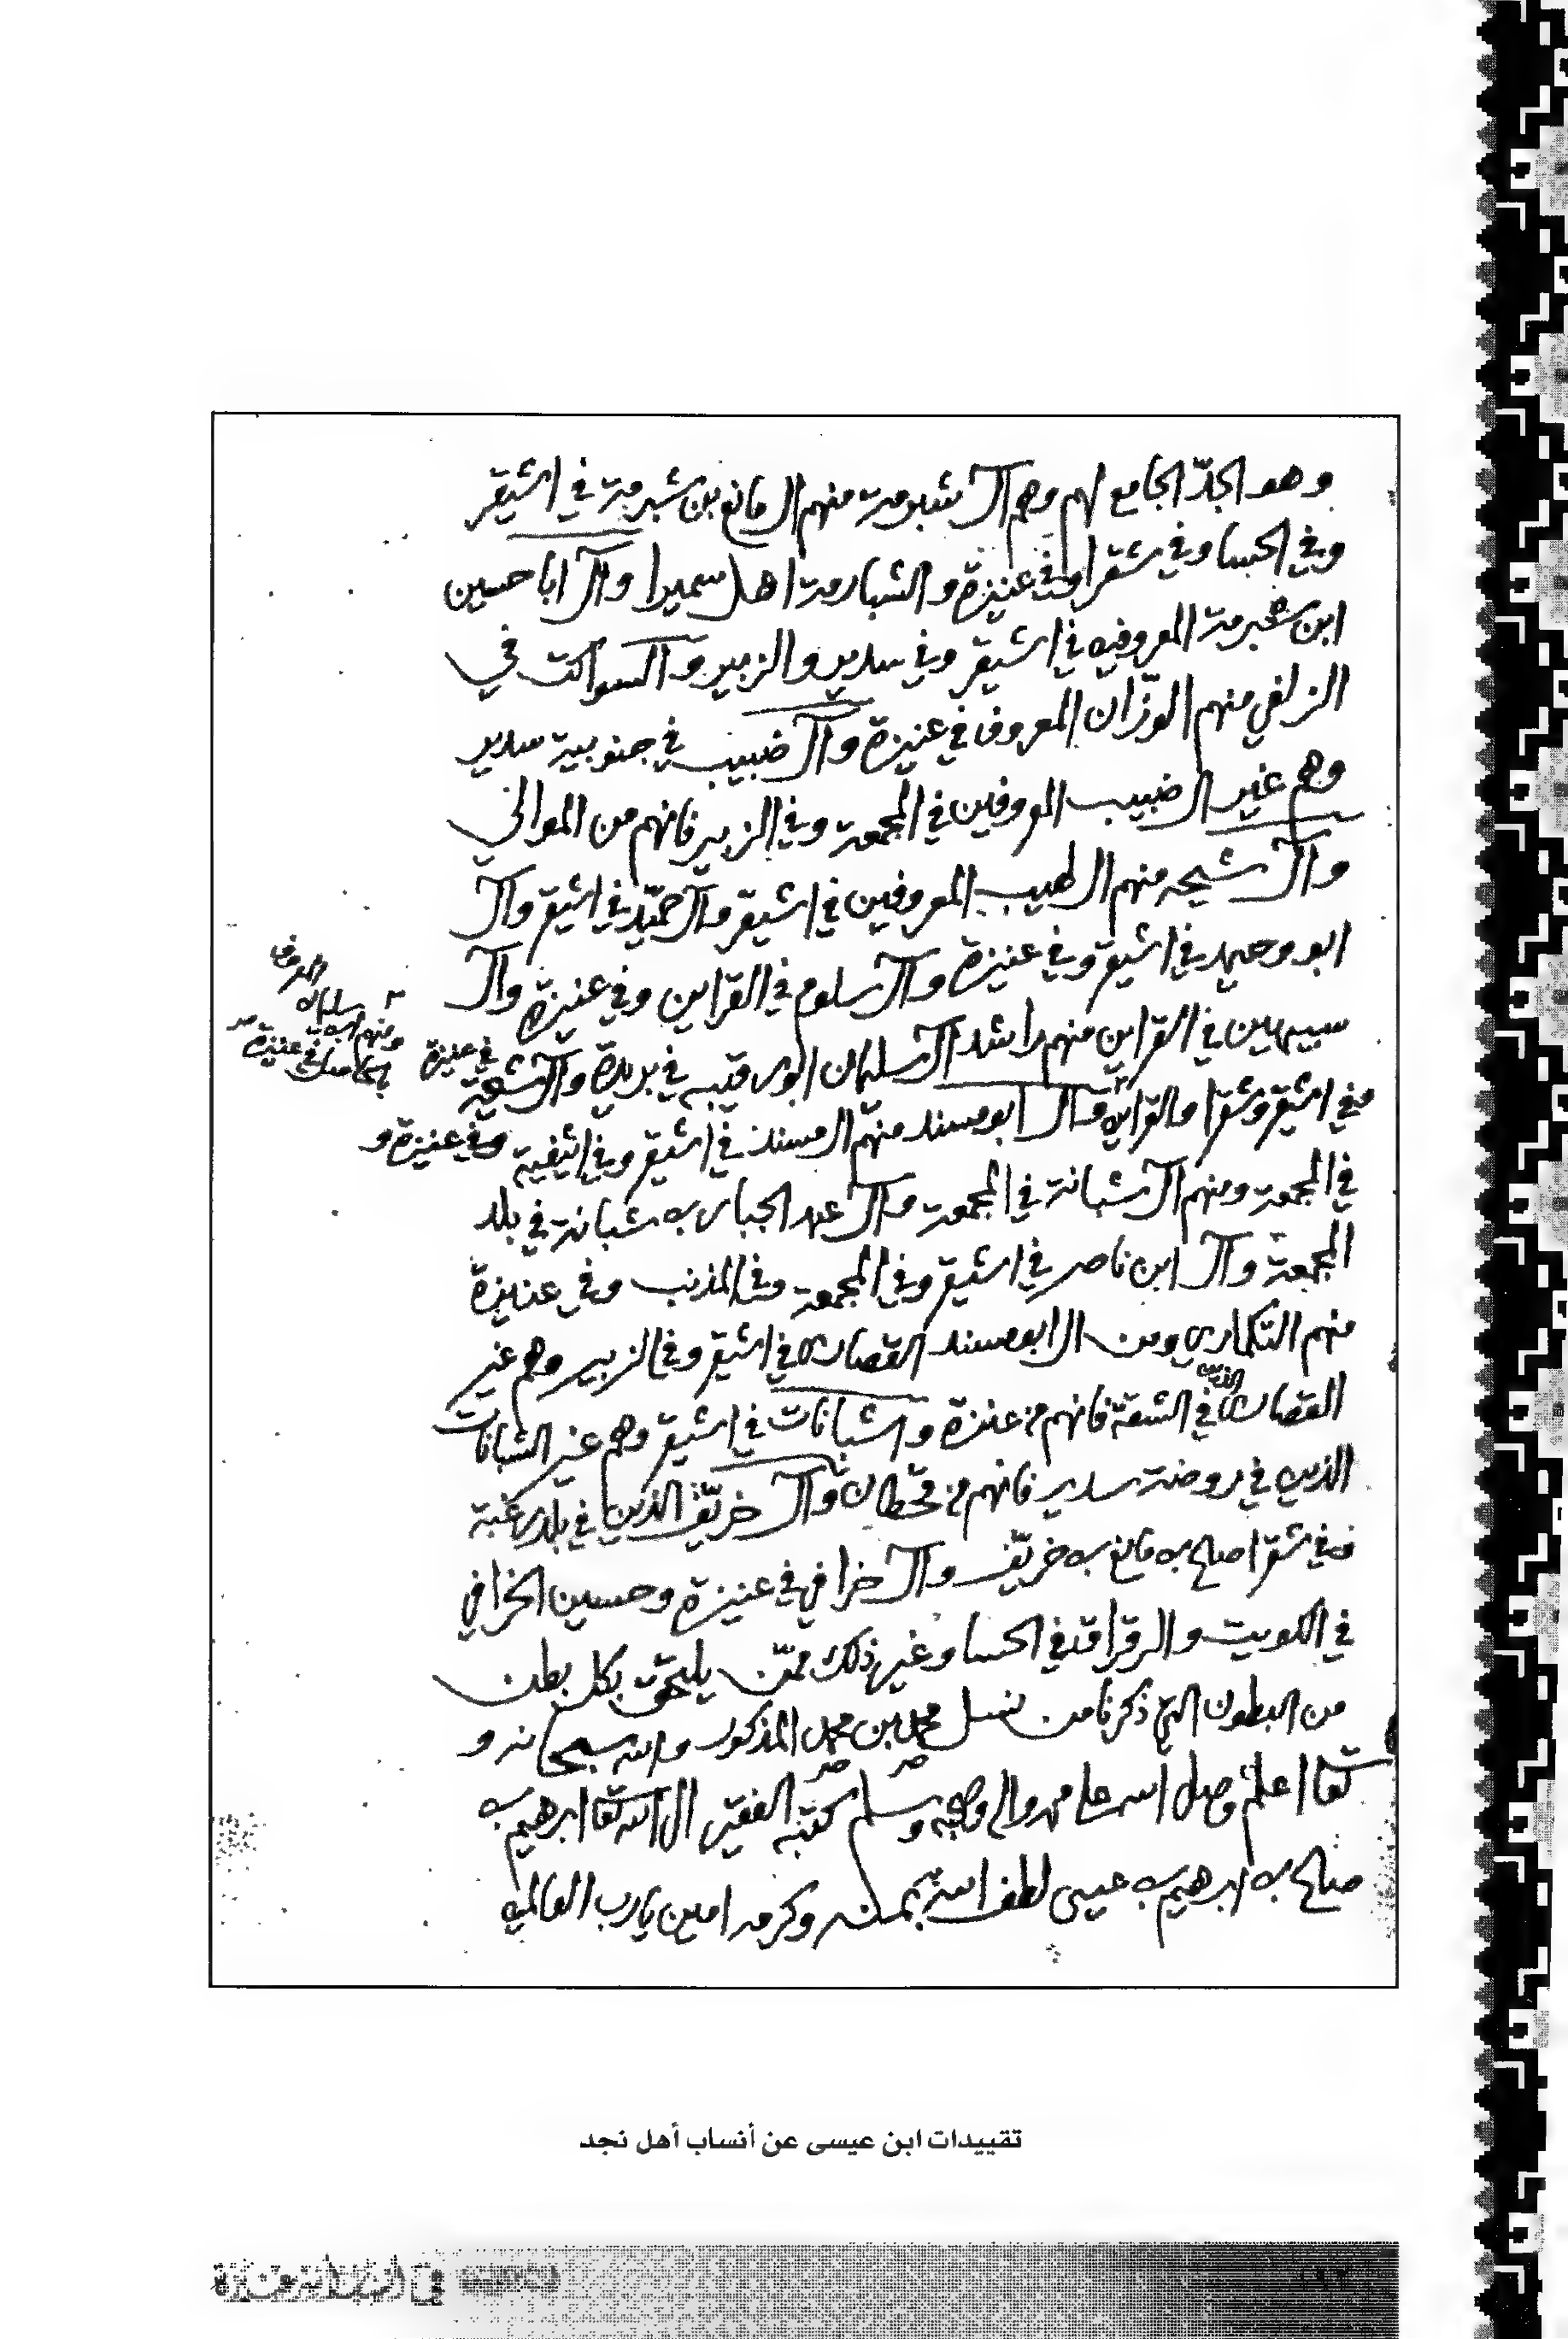 وهو الجدّ الجامع لهم وهم آل شبرمة منهم ال مانع بن شبرمة في اشيقر
وفي الحسا وفي شقرا وفي عنيزة والشبارمة اهل سميرا وآل ابا حسين
ابن شبرمة المعروفين في اشيقر وفي سدير والزبير والسواكت في
الزلفي منهم الوزّان المعروف في عنيزة وآل ضبيب في جنوبية سدير
وهم غير ال ضبيب المعروفين في المجمعة وفي الزبير فانهم من الموالي
وآل شيحه منهم ال لهيب المعروفين في اشيقر وآل حميّد في اشيقر وآل
ابو وحيمد في اشيقر وفي عنيزة وآل سلوم في القراين وفي عنيزة وآل
سيبهين في القراين منهم راشد آل سليمان ابو رقيبه في بريدة وآل شقير في عنيزة
وفي اشيقر وشقرا والقراين وآل ابو مسند منهم ال مسند في اشيقر وفي اثيفية وفي عنيزة و
ومنهم سليمان المعروف
في عنيزة صح
في المجمعة ومنهم آل شبانة في المجمعة وآل عبد الجبار بن شبانة في بلد
المجمعة وآل ابن ناصر في اشيقر وفي المجمعة وفي المذنب وفي عنيزة
منهم النكماري ومن ال ابو مسند القصارى في اشيقر وفي الزبير وهم غير
القصارى الذين في الشقة فانهم من عنزة والشبانات في اشيقر وهم غير الشبانات
الذين في روضة سدير فانهم من قحطان وآل خريّف الذين في بلد رغبة
وفي شقرا صالح بن مانع بن خريّف وآل خرافي في عنيزة وحسين الخرافي
في الكويت والرقراقه في الحسا وغير ذلك ممّن يلتحق بكل بطن
من البطون التي ذكرنا من نسل محمد بن محمد المذكور والله سبحانه و
تعا اعلم وصلى الله على محمد واله وصحبه وسلم كتبه الفقير الى الله تعا ابرهيم بن
صالح بن ابرهيم بن عيسى لطف الله به بمنه وكرمه امين يا رب العالمين
تقييدات ابن عيسى عن أنساب أهل نجد